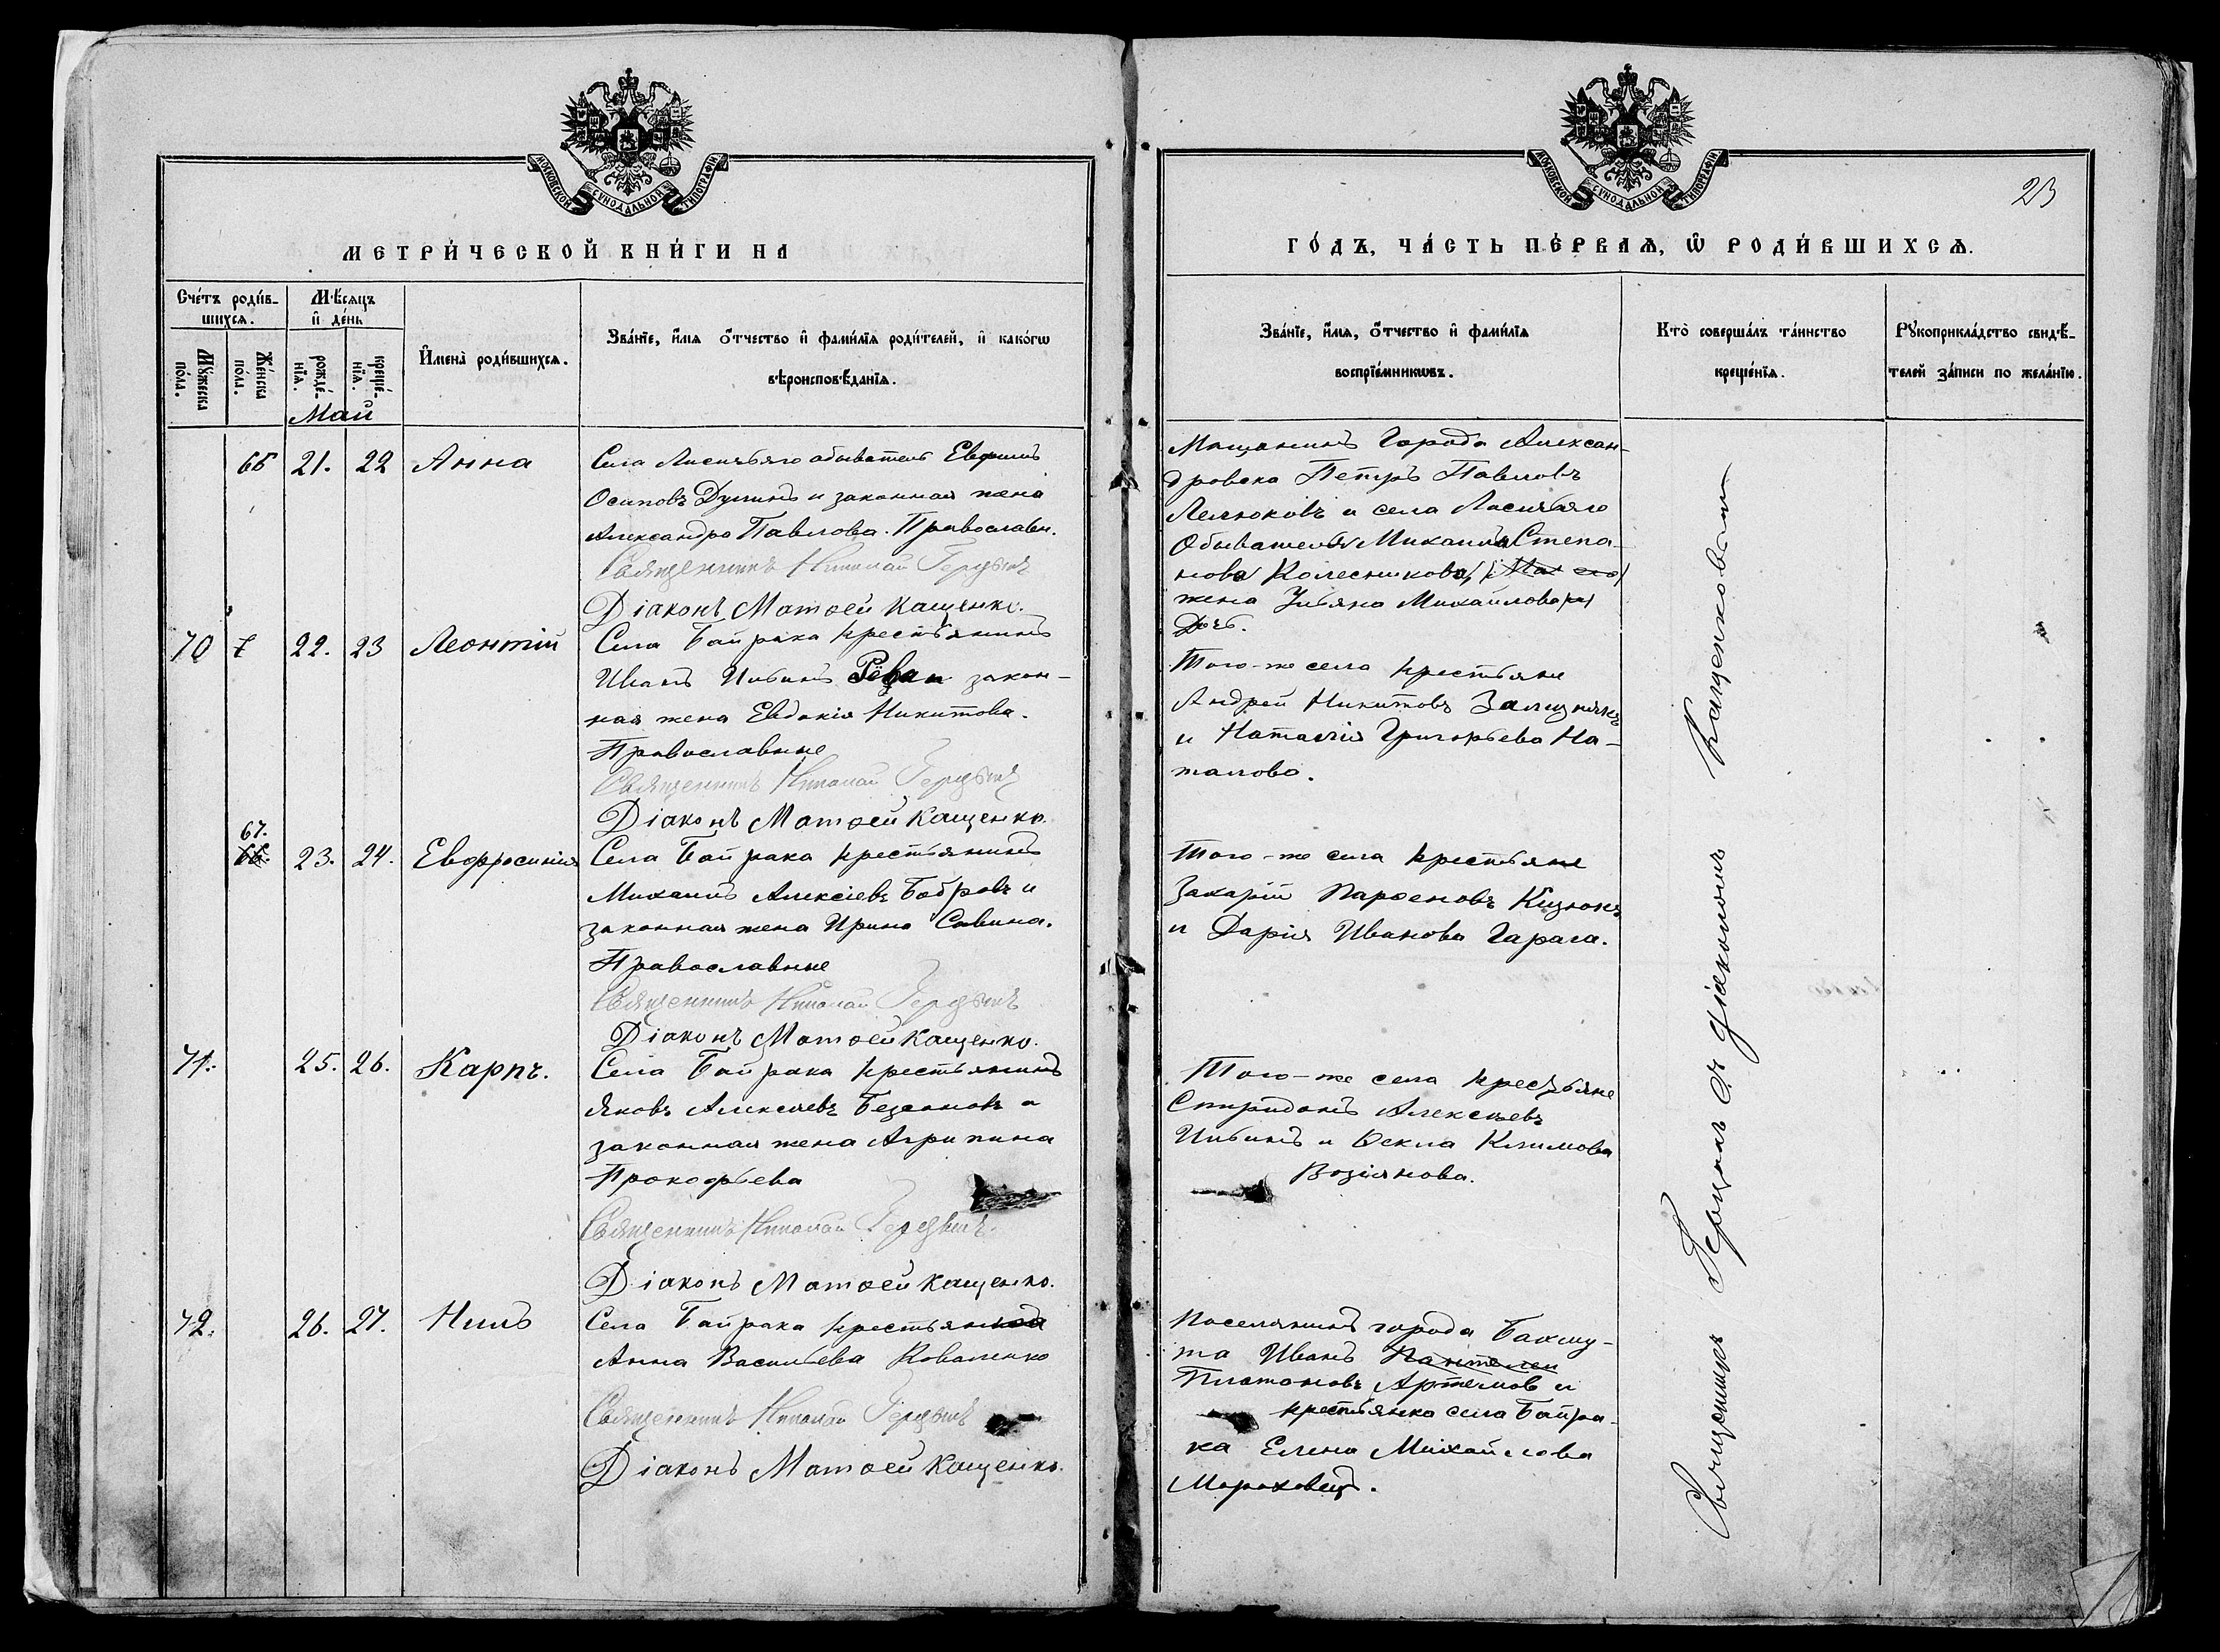 МОСКОВСКОЙ СѴНОДАЛЬНОЙ ТИПОГРАФІИ
МЕТРИ́ЧЕСКОЙ КНИ́ГИ НА
Сче́тъ роди́в-
шихсѧ.
Мѣ́сѧцъ
и҆ де́нь
Мꙋ́жеска
по́ла.
Же́нска
по́ла.
рожде́-
нїѧ.
креще́-
нїѧ.
И҆мена̀ роди́вшихсѧ.
Зва́нїе, и҆́мѧ ѻ҆́тчество и҆ фами́лїѧ роди́телей, и҆ како́гѡ
вѣроисповѣ́данїѧ.
Май
66 21. 22 Анна
Села обыватель Евфимъ
Осиповъ и законная жена
Александра Павлова. Православн.
Священникъ Николай
Діаконъ Матѳей Кащенко.
70 22. 23 Леонтій
Села Байрака крестьянинъ
Иванъ Рева и закон-
ная жена Евдокія Никитова.
Православные
Священникъ Николай
Діаконъ Матѳей Кащенко.
67.
66. 23. 24. Евфросинія
Села Байрака крестьянинъ
Михаилъ Алексіевъ Бобровъ и
законная жена Ирина Савина.
Православные
Священникъ Николай
Діаконъ Матѳей Кащенко.
71. 25. 26. Карпъ.
Села Байрака крестьянинъ
Яковъ Алексіевъ и
законная жена Агрипина
Прокофьева
Священникъ Николай
Діаконъ Матѳей Кащенко.
72. 26. 27. Нилъ
Села Байрака крестьянка
Анна Васильева Коваленко
Священникъ Николай
Діаконъ Матѳей Кащенко.
МОСКОВСКОЙ СѴНОДАЛЬНОЙ ТИПОГРАФІИ
23
ГО́ДЪ, ЧА́СТЬ ПЕ́РВАѦ, Ѽ РОДИ́ВШИХСѦ.
Зва́нїе, и҆́мѧ, ѻ҆́тчество и҆ фами́лїѧ
воспрїе́мникѡвъ.
Кто̀ соверша́лъ та́инство
креще́нїѧ.
Рꙋкоприкла́дство свидѣ́-
телей за́писи по жела́нїю.
Мѣщанинъ города Алексан-
дровска Петръ Павловъ
и села
Обывателя Михаила Степа-
нова Колесникова
жена Ульяна Михайлова
Того-же села крестьяне
Андрей Никитовъ Зализнякъ
и Наталія Григорьева На-
талова.
Того-же села крестьяне
Захарій Парѳеновъ
и Дарія Иванова Гарага.
Того-же села крестьяне
Спиридонъ Алексѣевъ
и Ѳекла Климова
Возіянова.
Поселянинъ города Бахму-
та Иванъ Пантелеи
Платоновъ Артемовъ и
крестьянка села Байра-
ка Елена Михайлова
Мороховецъ.
Священникъ съ діакономъ Кащенковымъ